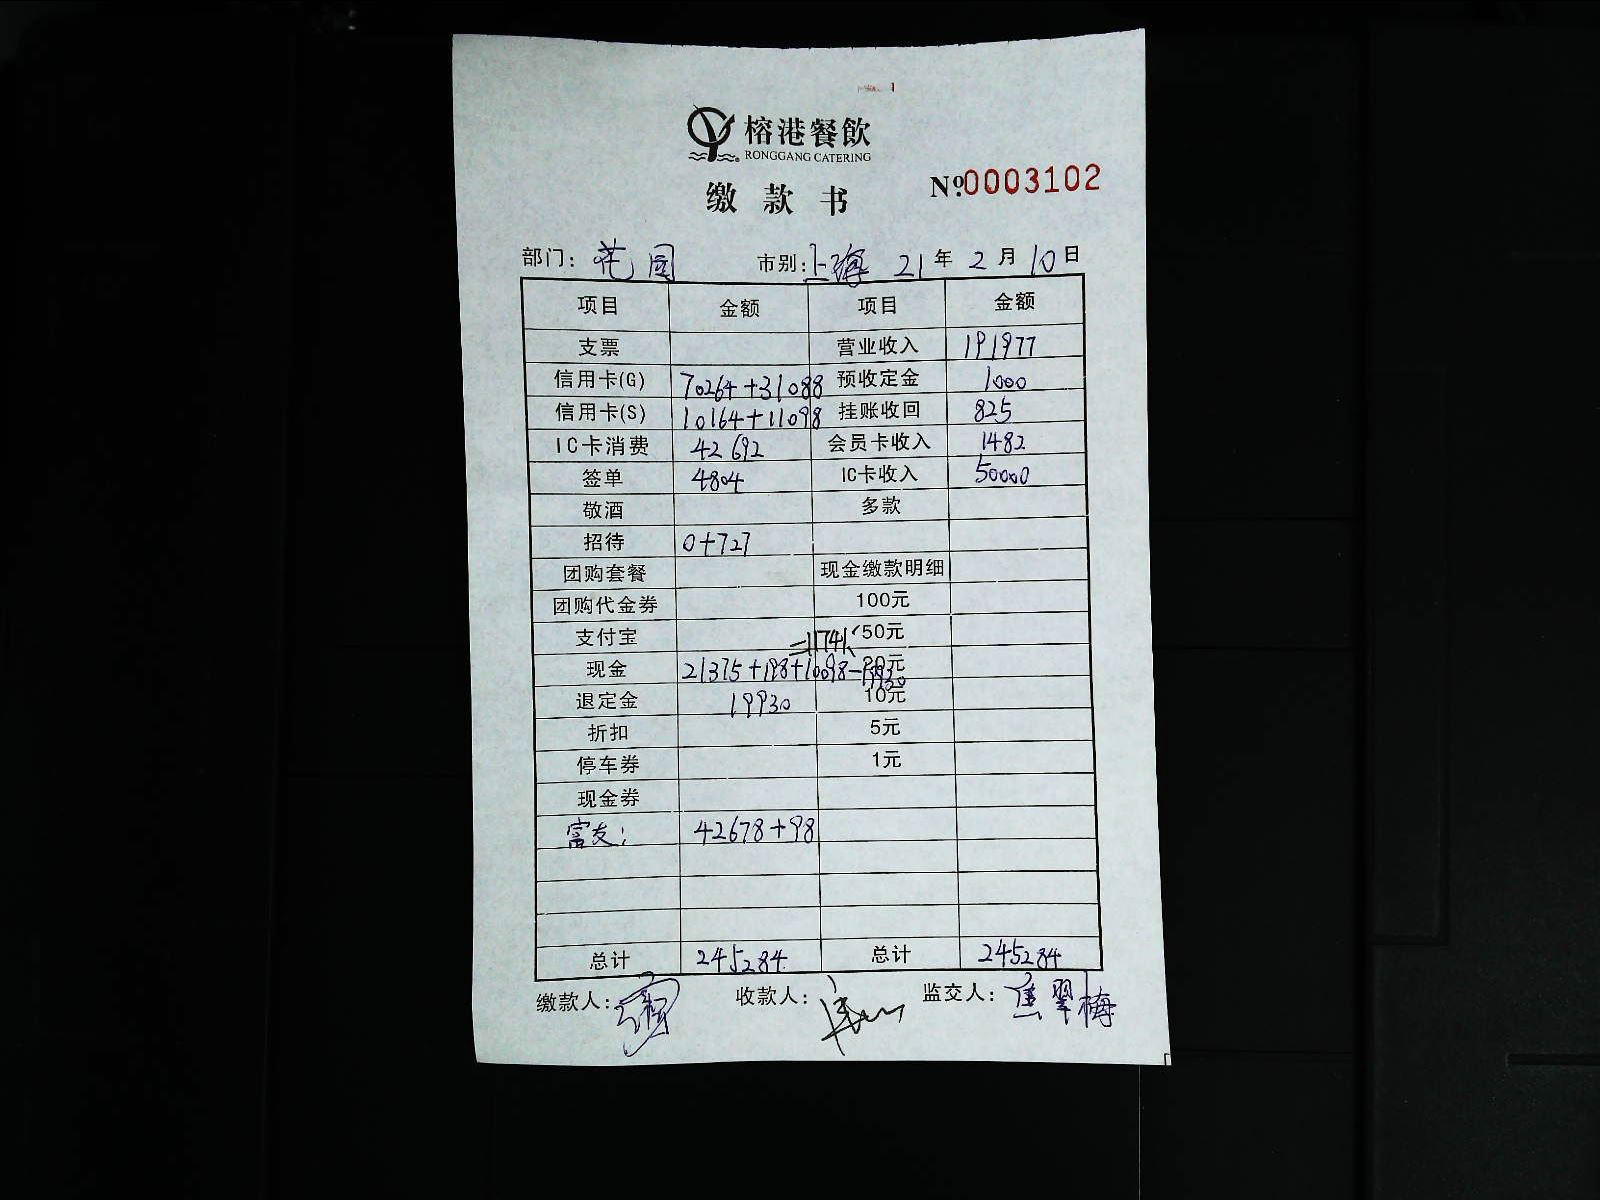 榕港餐飲
RONGGANG CATERING
缴款书
№:0003102
部门: 花园 市别: 上海 21年2月10日
项目 金额 项目 金额
支票 营业收入 191977
信用卡(G) 70264+31088 预收定金 1000
信用卡(S) 10164+11098 挂账收回 825
IC卡消费 42692 会员卡收入 1482
签单 4804 IC卡收入 50000
敬酒 多款
招待 0+727
团购套餐 现金缴款明细
团购代金券 100元
支付宝 =11741 50元
现金 21375+198+10098-19930 20元
退定金 19930 10元
折扣 5元
停车券 1元
现金券
富友: 42678+98
总计 245284 总计 245284
缴款人: 收款人: 监交人: 焦翠梅